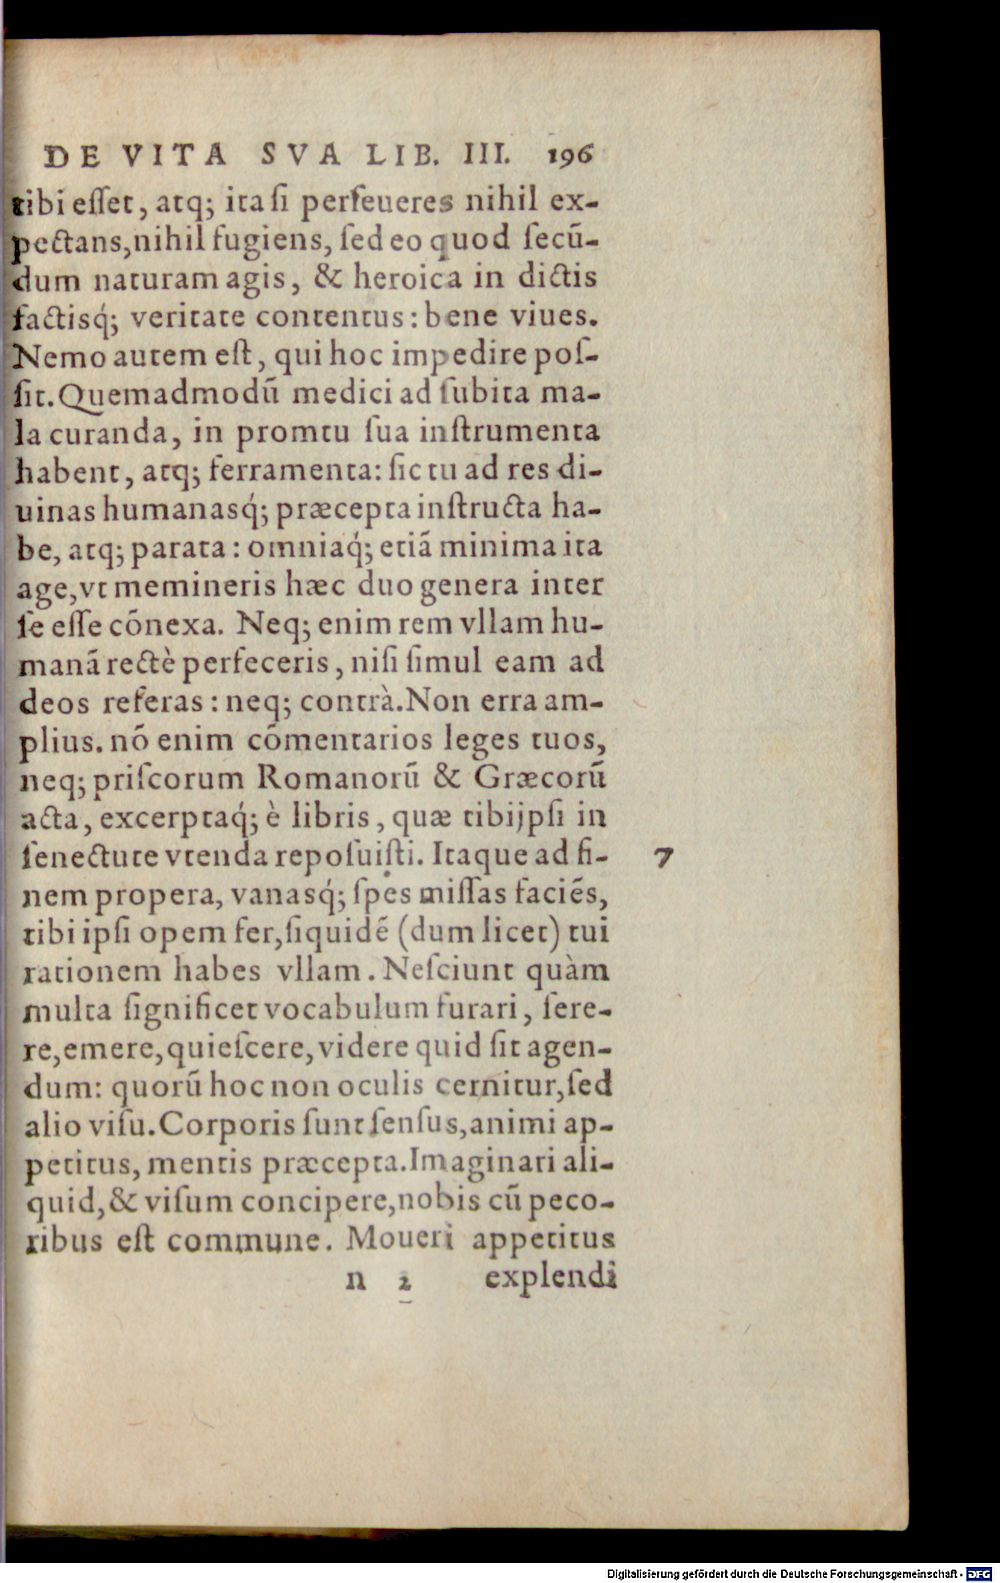 DE VITA SVA LIB. III. 196
tibi eſſet, atq; ita ſi perſeueres nihil ex-
pectans, nihil fugiens, ſed eo quod ſecū-
dum naturam agis, & heroica in dictis
factisq́; veritate contentus: bene viues.
Nemo autem eſt, qui hoc impedire poſ-
ſit. Quemadmodū medici ad ſubita ma-
la curanda, in promtu ſua inſtrumenta
habent, atq; ferramenta: ſic tu ad res di-
uinas humanasq́; præcepta inſtructa ha-
be, atq; parata: omniaq́; etiā minima ita
age, vt memineris hæc duo genera inter
ſe eſſe cōnexa. Neq; enim rem vllam hu-
manā rectè perfeceris, niſi ſimul eam ad
deos referas: neq; contrà. Non erra am-
plius. nō enim cōmentarios leges tuos,
neq; priſcorum Romanorū & Græcorū
acta, excerptaq́; è libris, quæ tibijpſi in
ſenectute vtenda repoſuiſti. Itaque ad fi- 7
nem propera, vanasq́; ſpes miſſas faciēs,
tibi ipſi opem fer, ſiquidē (dum licet) tui
rationem habes vllam. Neſciunt quàm
multa ſignificet vocabulum furari, ſere-
re, emere, quieſcere, videre quid ſit agen-
dum: quorū hoc non oculis cernitur, ſed
alio viſu. Corporis ſunt ſenſus, animi ap-
petitus, mentis præcepta. Imaginari ali-
quid, & viſum concipere, nobis cū peco-
ribus eſt commune. Moueri appetitus
n 2 explendi
Digitalisierung gefördert durch die Deutsche Forschungsgemeinschaft - DFG